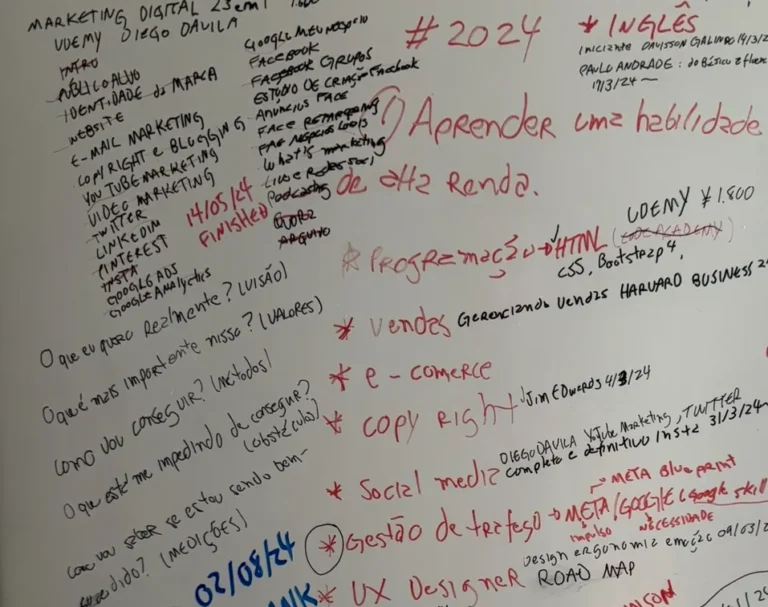 MARKETING DIGITAL 23 em 1
UDEMY DIEGO DAVILA
INTRO
PÚBLICO ALVO
IDENTIDADE da MARCA
WEBSITE
E-MAIL MARKETING
COPYRIGHT e BLOGGING
YOUTUBE MARKETING
VIDEO MARKETING
TWITTER
LINKEDIM
PINTEREST
INSTA
GOOGLE ADS
GOOGLE Analytics
14/05/24
FINISHED
GOOGLE MEU NEGOCIO
FACEBOOK
FACEBOOK GRUPOS
ESTÚDIO DE CRIAÇÃO Facebook
ANÚNCIOS FACE
FACE REMARKETING
What's marketing
Podcasting
QUORA
ARQUIVO
O que eu quero Realmente? (VISÃO)
O que é mais importante nisso? (VALORES)
como vou conseguir? (métodos)
O que está me impedindo de conseguir?
(obstáculo)
como vou saber se estou sendo bem-
sucedido? (MEDIÇÕES)
02/08/24
# 2024
* INGLÊS
Iniciante DAVISSON GALINDO
PAULO ANDRADE: do Básico
17/3/24 ~
1) Aprender uma habilidade
de alta Renda.
* PROGRAMAÇÃO → HTML UDEMY ¥ 1.800
CSS, Bootstrap 4,
* vendas Gerenciando vendas HARVARD BUSINESS
* e-comerce
* copy Right Jim Edwards 4/3/24
* Social media DIEGO DAVILA YouTube Marketing, TWITTER
completo e definitivo Insta 31/3/24 ~
* Gestão de trafego → META/GOOGLE (Google skill
META Blueprint
impulso NECESSIDADE
* UX Designer Design ergonomia emoção 09/03/2
ROAD MAP